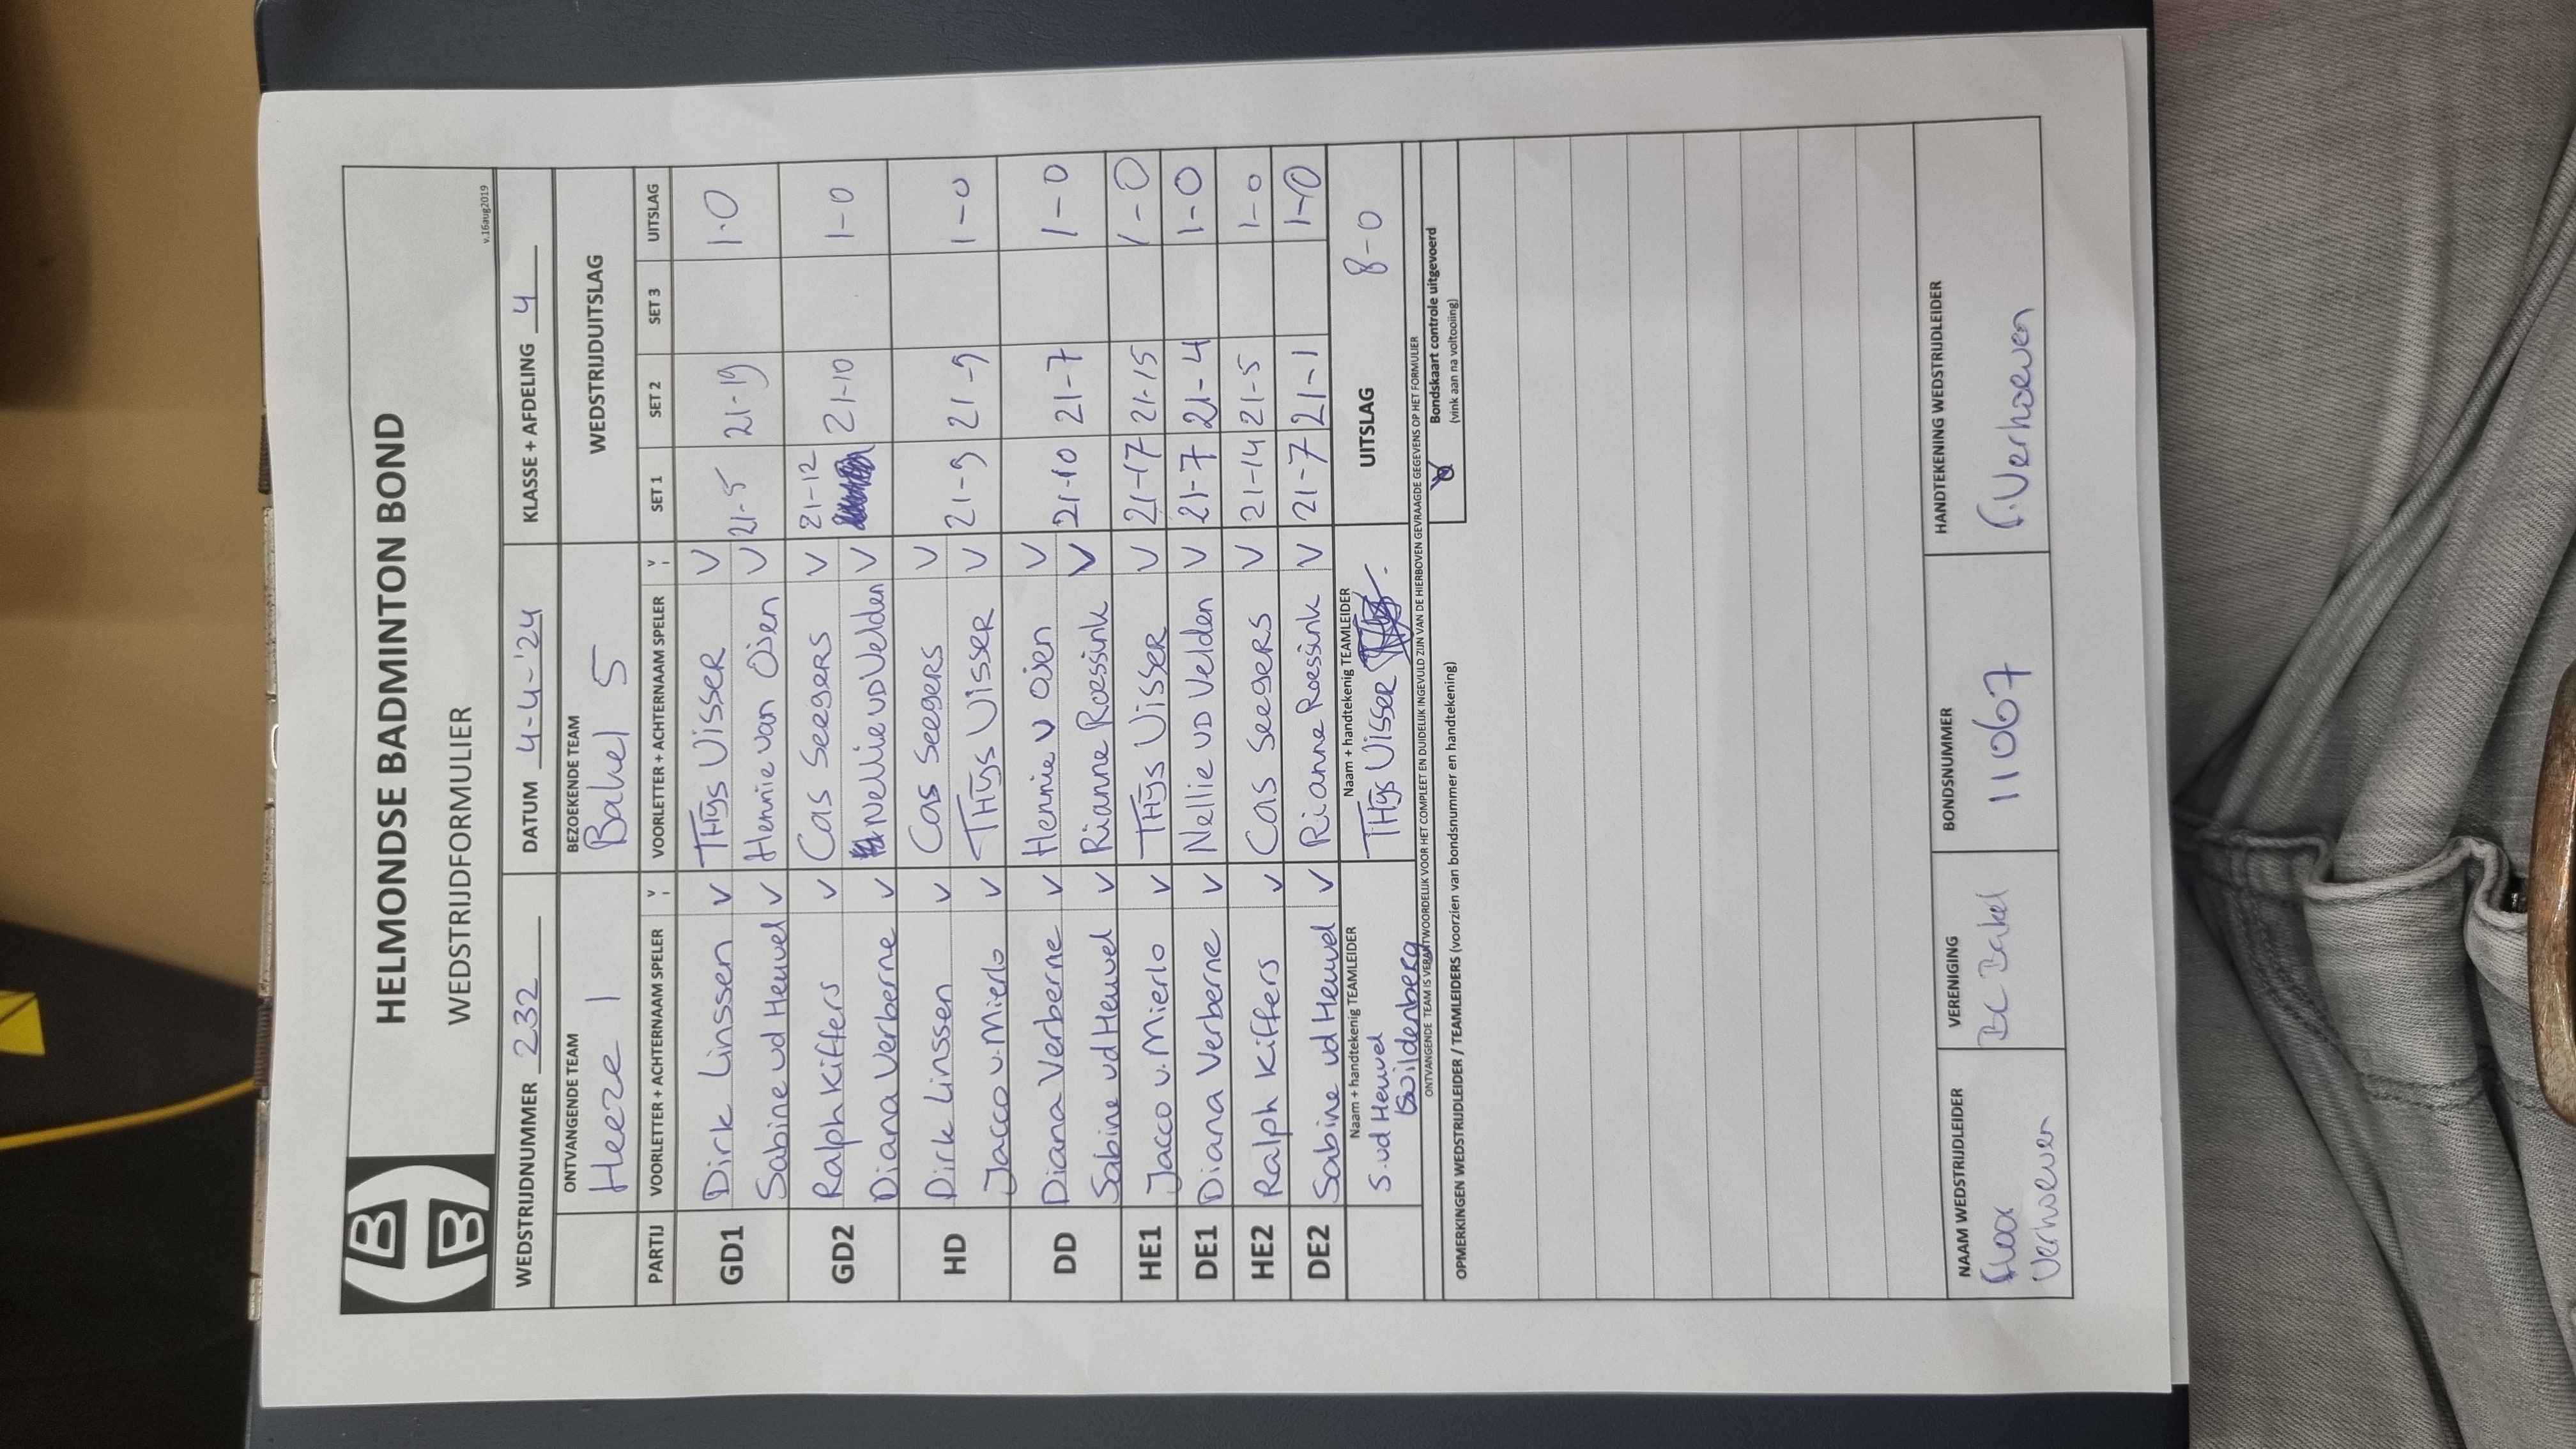 HELMONDSE BADMINTON BOND
WEDSTRIJDFORMULIER
v.16aug2019
WEDSTRIJDNUMMER 232 DATUM 4-4-'24 KLASSE + AFDELING 4
ONTVANGENDE TEAM BEZOEKENDE TEAM WEDSTRIJDUITSLAG
Heeze 1 Bakel 5
PARTIJ VOORLETTER + ACHTERNAAM SPELER V VOORLETTER + ACHTERNAAM SPELER V SET 1 SET 2 SET 3 UITSLAG
GD1 Dirk Linssen V THijs Visser V 21-5 21-19 1-0
Sabine vd Heuvel V Hennie van Oijen V
GD2 Ralph Kiffers V Cas Seegers V 21-12 21-10 1-0
Diana Verberne V Nellie VD Velden V
HD Dirk Linssen V Cas Seegers V 21-9 21-9 1-0
Jacco v. Mierlo V THijs Visser V
DD Diana Verberne V Hennie v Oijen V 21-10 21-7 1-0
Sabine vd Heuvel V Rianne Roessink V
HE1 Jacco v. Mierlo V THijs Visser V 21-17 21-15 1-0
DE1 Diana Verberne V Nellie VD Velden V 21-7 21-4 1-0
HE2 Ralph Kiffers V Cas Seegers V 21-14 21-5 1-0
DE2 Sabine vd Heuvel V Rianne Roessink V 21-7 21-1 1-0
Naam + handtekenig TEAMLEIDER Naam + handtekenig TEAMLEIDER
S. vd Heuvel THijs Visser UITSLAG 8-0
Swildenberg
ONTVANGENDE TEAM IS VERANTWOORDELIJK VOOR HET COMPLEET EN DUIDELIJK INGEVULD ZIJN VAN DE HIERBOVEN GEVRAAGDE GEGEVENS OP HET FORMULIER
Bondskaart controle uitgevoerd
(vink aan na voltooiing)
OPMERKINGEN WEDSTRIJDLEIDER / TEAMLEIDERS (voorzien van bondsnummer en handtekening)
NAAM WEDSTRIJDLEIDER VERENIGING BONDSNUMMER HANDTEKENING WEDSTRIJDLEIDER
Floor BC Bakel 11067 F. Verhoeven
Verhoeven